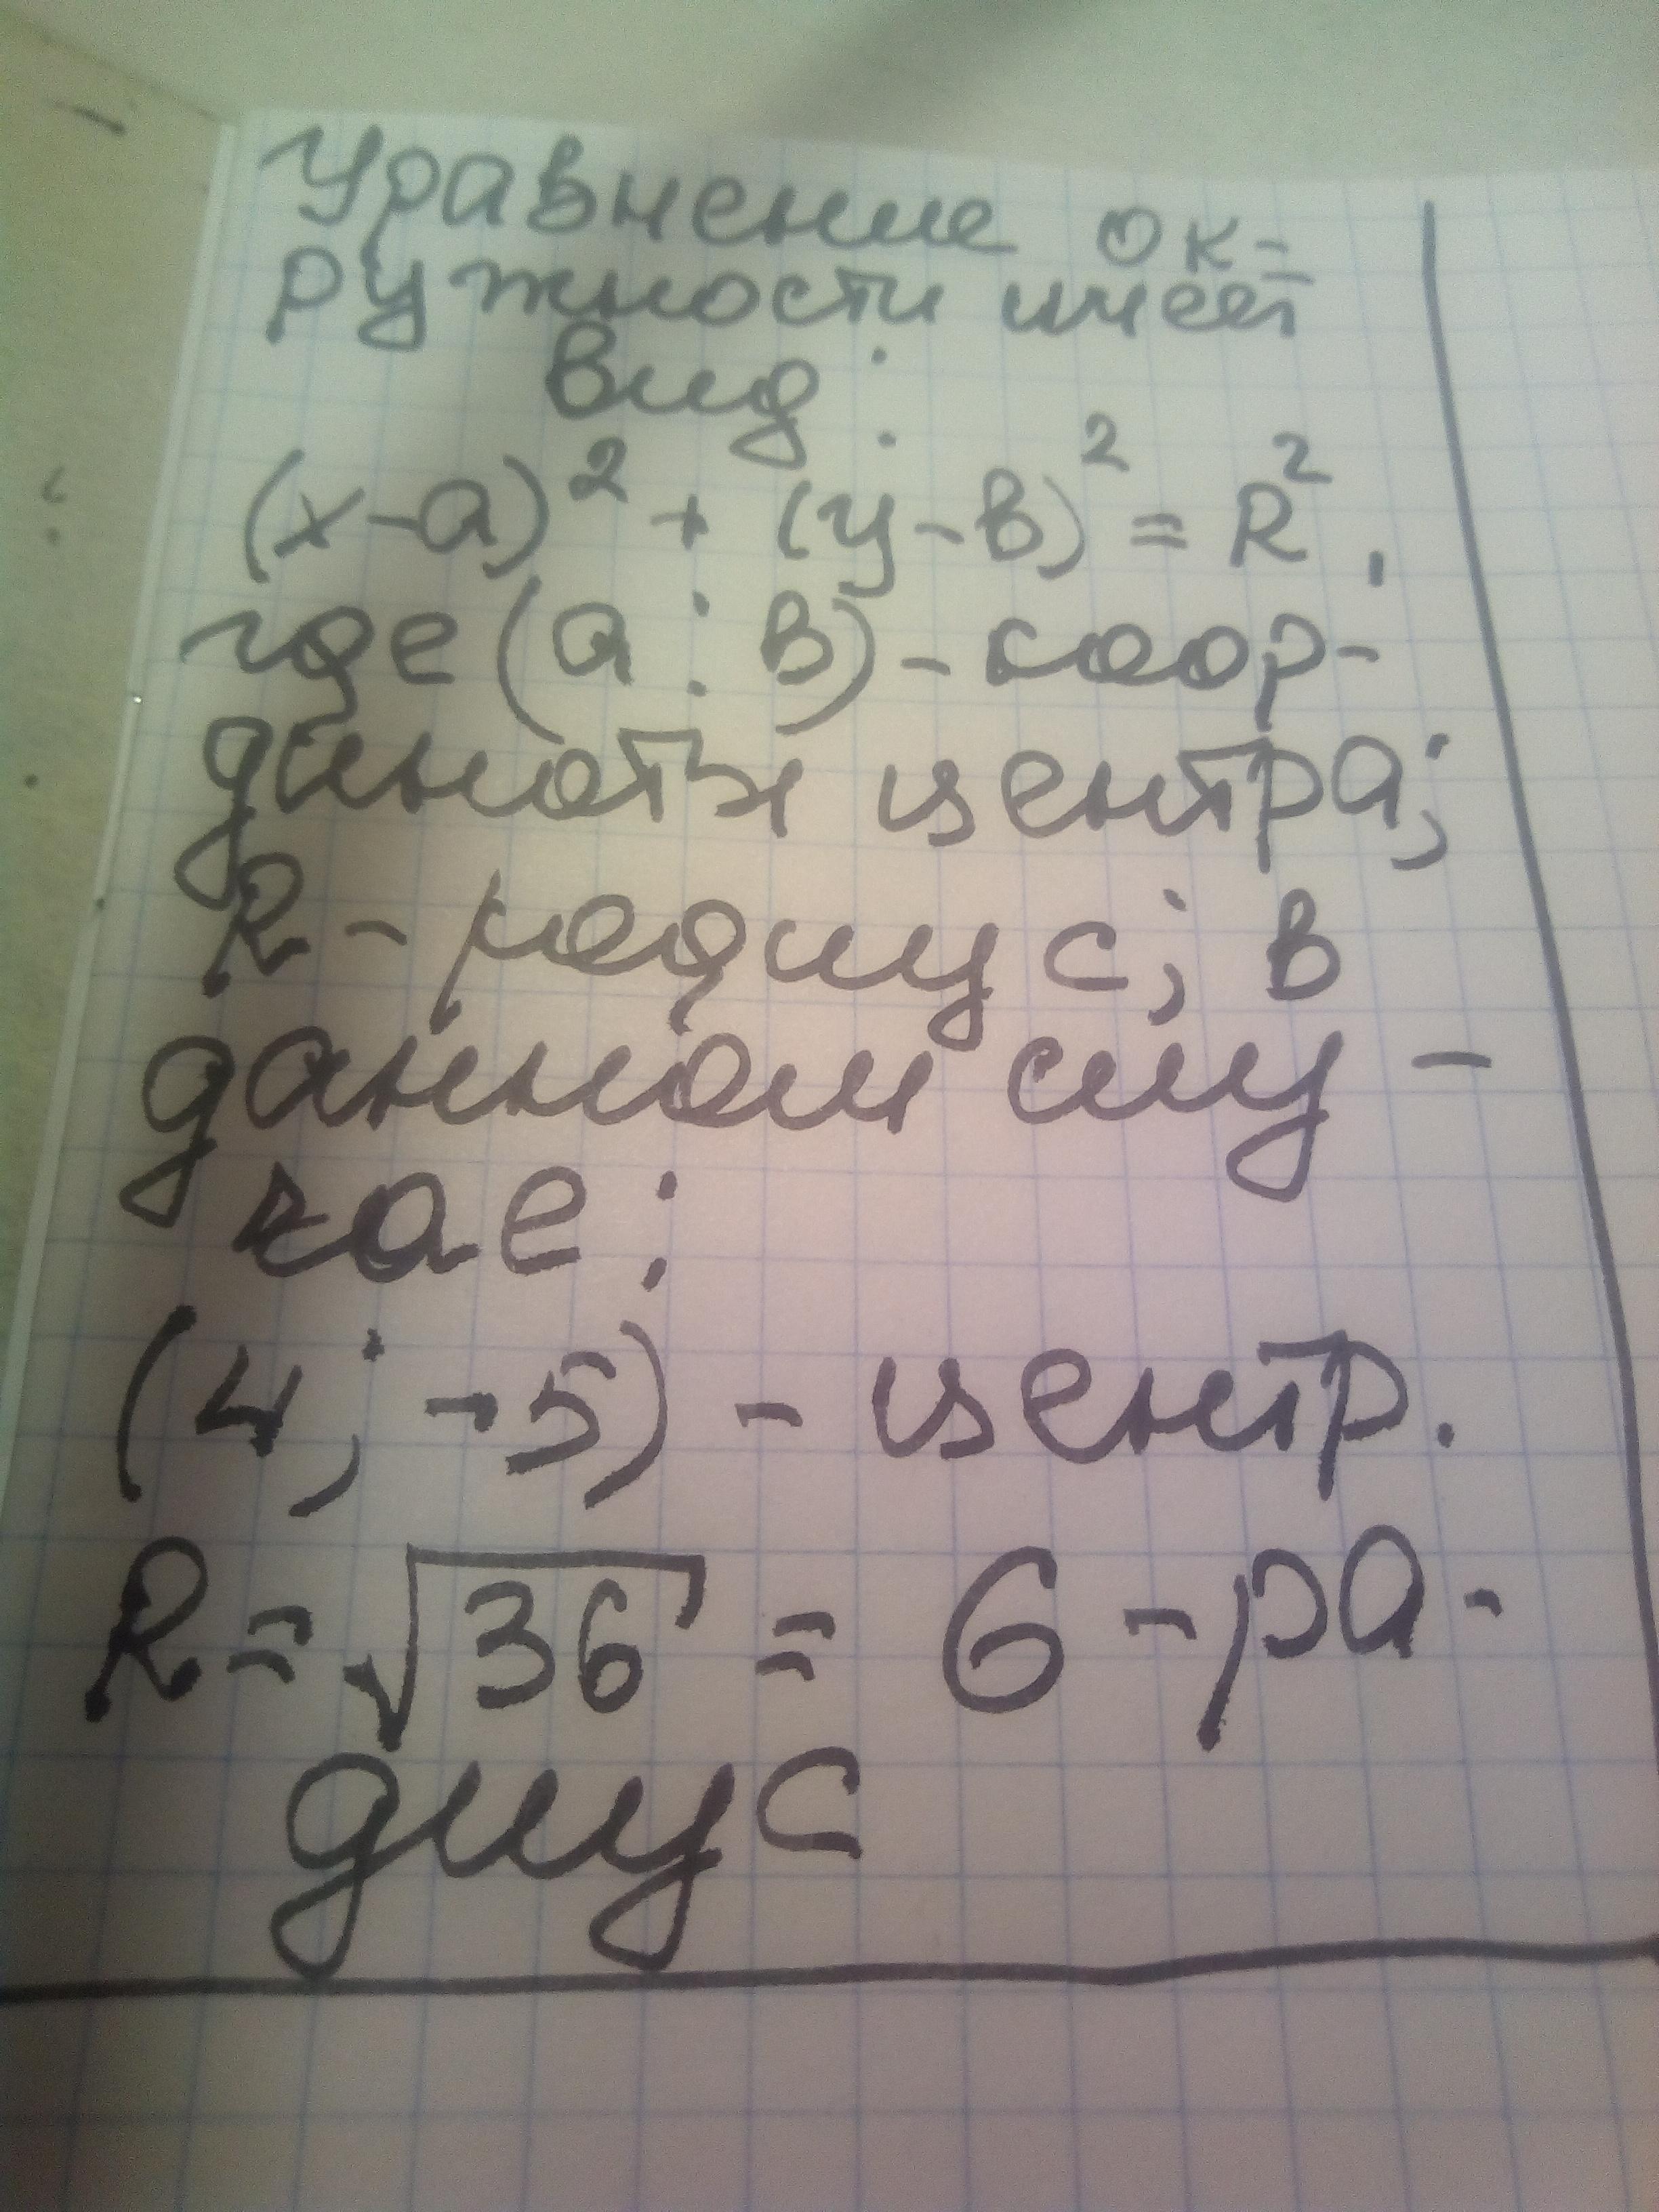 Уравнение ок-
ружности имеет
вид:
(x-a)² + (y-в)² = R²,
где (a : в) - коор-
динаты центра;
R - радиус; в
данном слу-
чае:
(4; -5) - центр.
R = √36 = 6 - ра-
диус